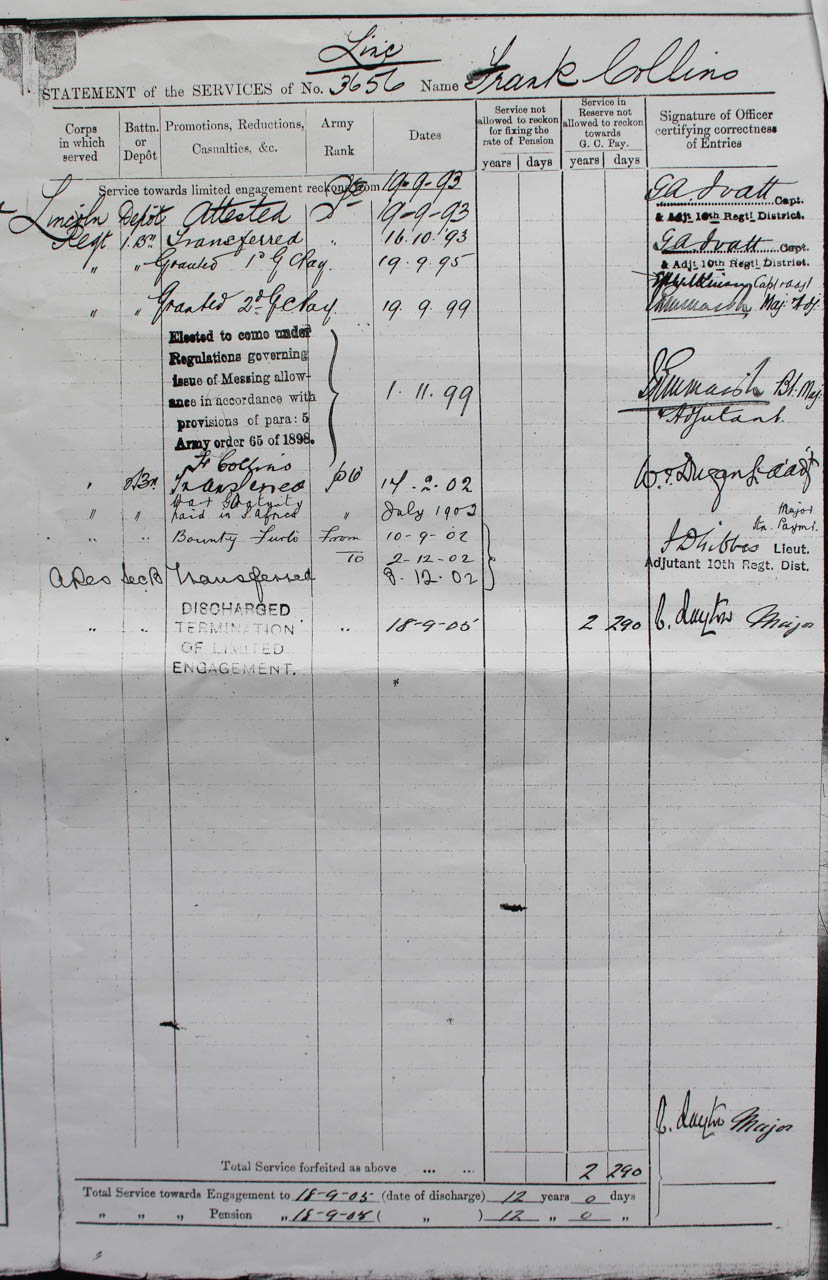 Linc
STATEMENT of the SERVICES of No. 3656 Name Frank Collins
Corps in which served
Battn. or Depôt
Promotions, Reductions, Casualties, &c.
Army Rank
Dates
Service not allowed to reckon for fixing the rate of Pension
years days
Service in Reserve not allowed to reckon towards G. C. Pay.
years days
Signature of Officer certifying correctness of Entries
Service towards limited engagement reckons from 19-9-93
Lincoln Depôt Attested 19-9-93 G.A. Ivatt Capt.
& Adjt 10th Regtl District.
Regt 1. Bn Transferred " 16.10.93 G.A. Ivatt Capt
& Adjt 10th Regtl District.
" " Granted 1st G C Pay. 19.9.95
" " Granted 2d G C Pay 19.9.99 Maj.
Elected to come under
Regulations governing
issue of Messing allow-
ance in accordance with 1.11.99 Bt. Maj.
provisions of para: 5 Adjutant.
Army order 65 of 1898.
F Collins
" Bn Transferred 14.2.02
" " War Gratuity
paid in S. Africa " July 1903 Major
Paymr.
" " Bounty Furlo From 10-9-02 Lieut.
To 2-12-02 Adjutant 10th Regt. Dist.
A Res Sec. B Transferred 3.12.02
DISCHARGED
TERMINATION
OF LIMITED
ENGAGEMENT.
" " " 18-9-05 2 290 Major
Major
Total Service forfeited as above ... ... 2 290
Total Service towards Engagement to 18-9-05 (date of discharge) 12 years 0 days
" " " Pension " 18-9-05 ( " ) 12 " 0 "